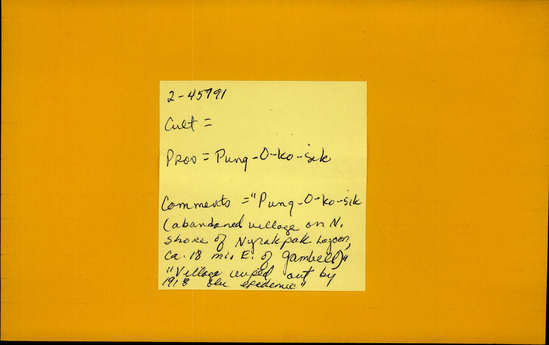 2-45791
Cult =
Prov = Pung-O-ko-sik
Comments = "Pung-O-ko-sik
(abandoned village on N.
shore of Nyrakpak Lagoon,
ca. 18 mi. E. of Gambell)"
"Village wiped out by
1918 flu epidemic"